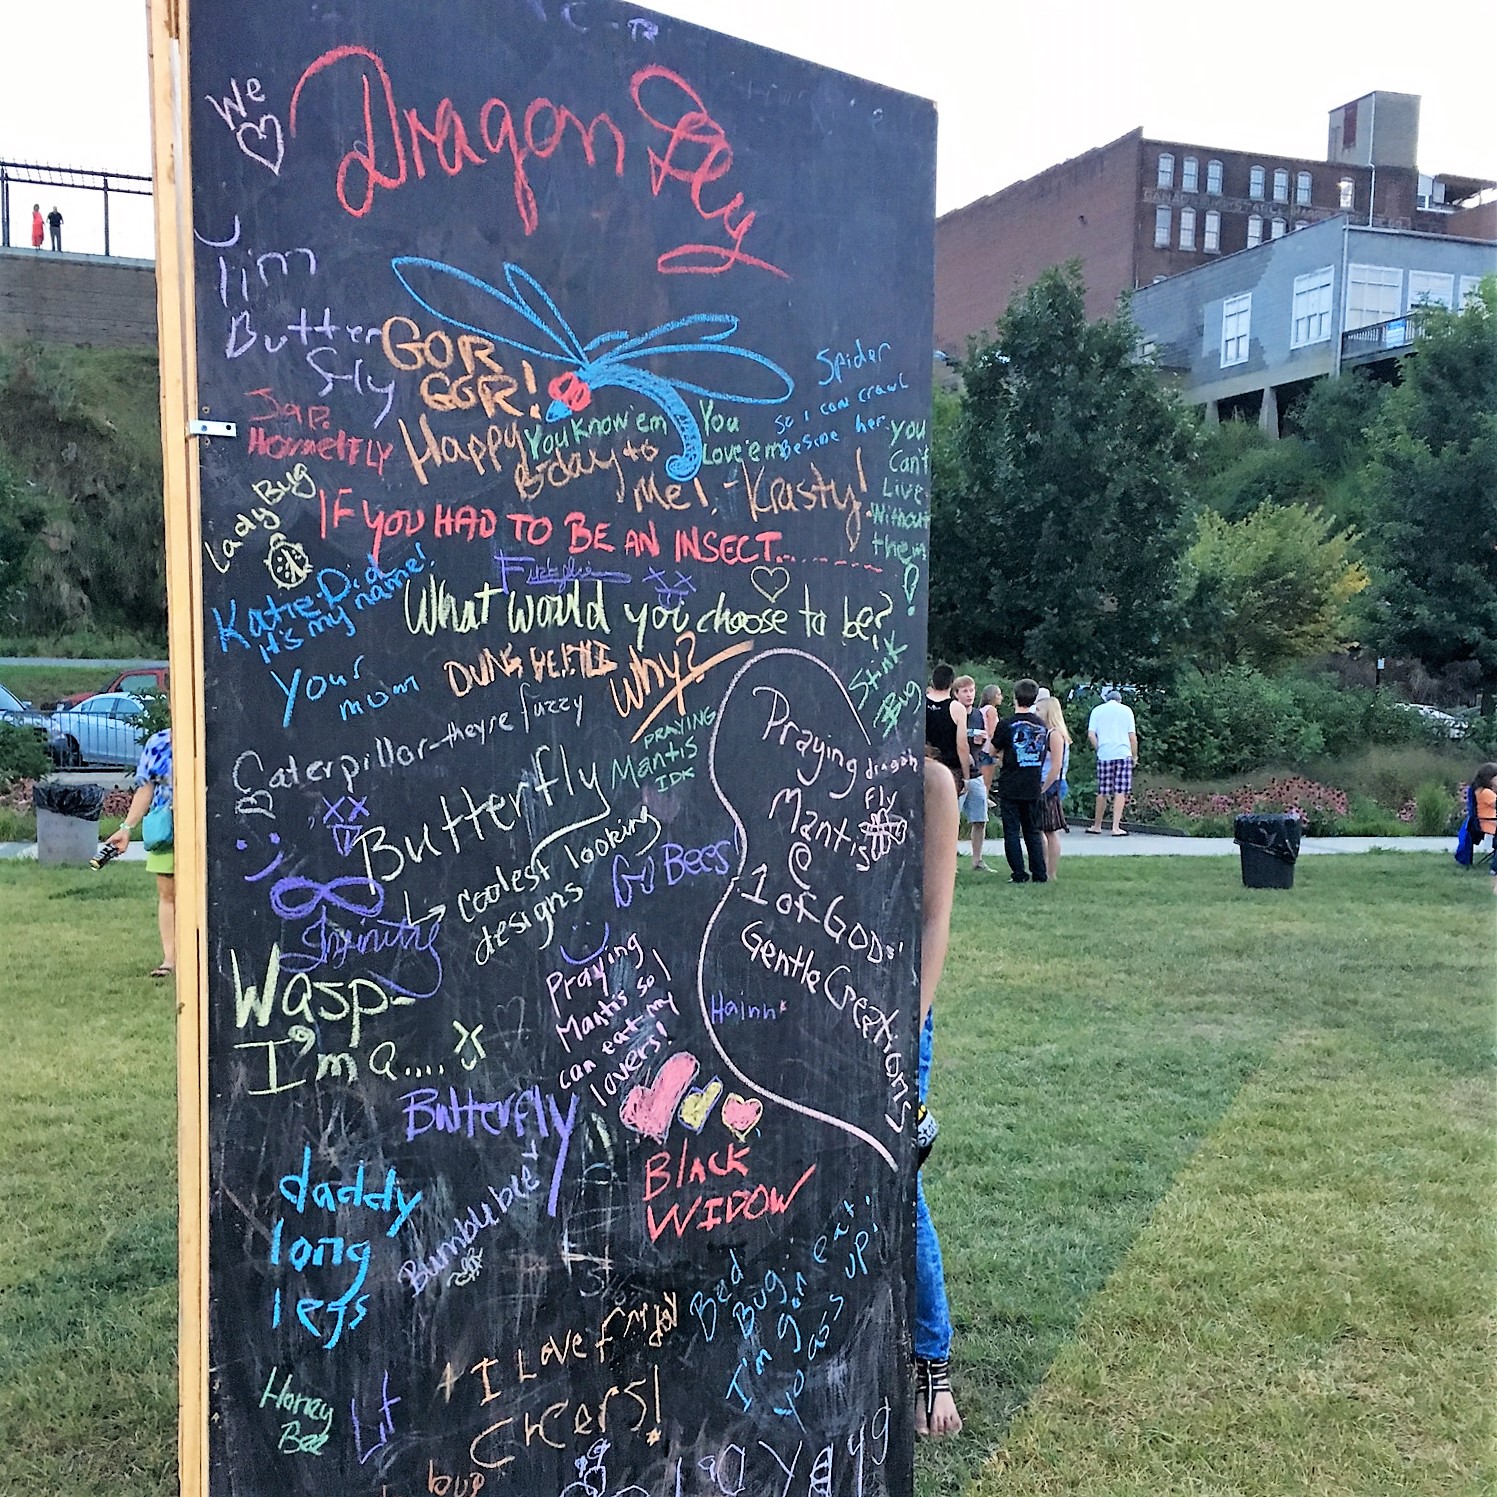 We
Dragon
Fly
Tim
Butter
fly
GOR
GGR!
Spider
so i can crawl
Beside her
Jap.
HornetFLY
Happy
Bday to
Me! - Krasty!
You Know 'em
You
Love 'em
you
Can't
Live
Without
them
!
Lady Bug
IF YOU HAD TO BE AN INSECT........
Katie-Did
it's my name!
What would you choose to be?
Your
mom
DUNG BEETLE
Why?
Stink
Bug
Caterpillar-they're fuzzy
PRAYING
Mantis
IDK
Butterfly
coolest looking
designs
Go Bees!
Praying
Mantis
1 of GODs'
Gentle Creations
dragon
fly
Infinity
Wasp-
I'm a....
Praying
Mantis so I
can eat my
lovers!
Hainh
Butterfly
Bumblybee
Black
WIDOW
daddy
long
legs
Bed
Bug:
I'm gon eat
yo ass up!
I Love
CHeers!
Honey
Bee
Lit
bug